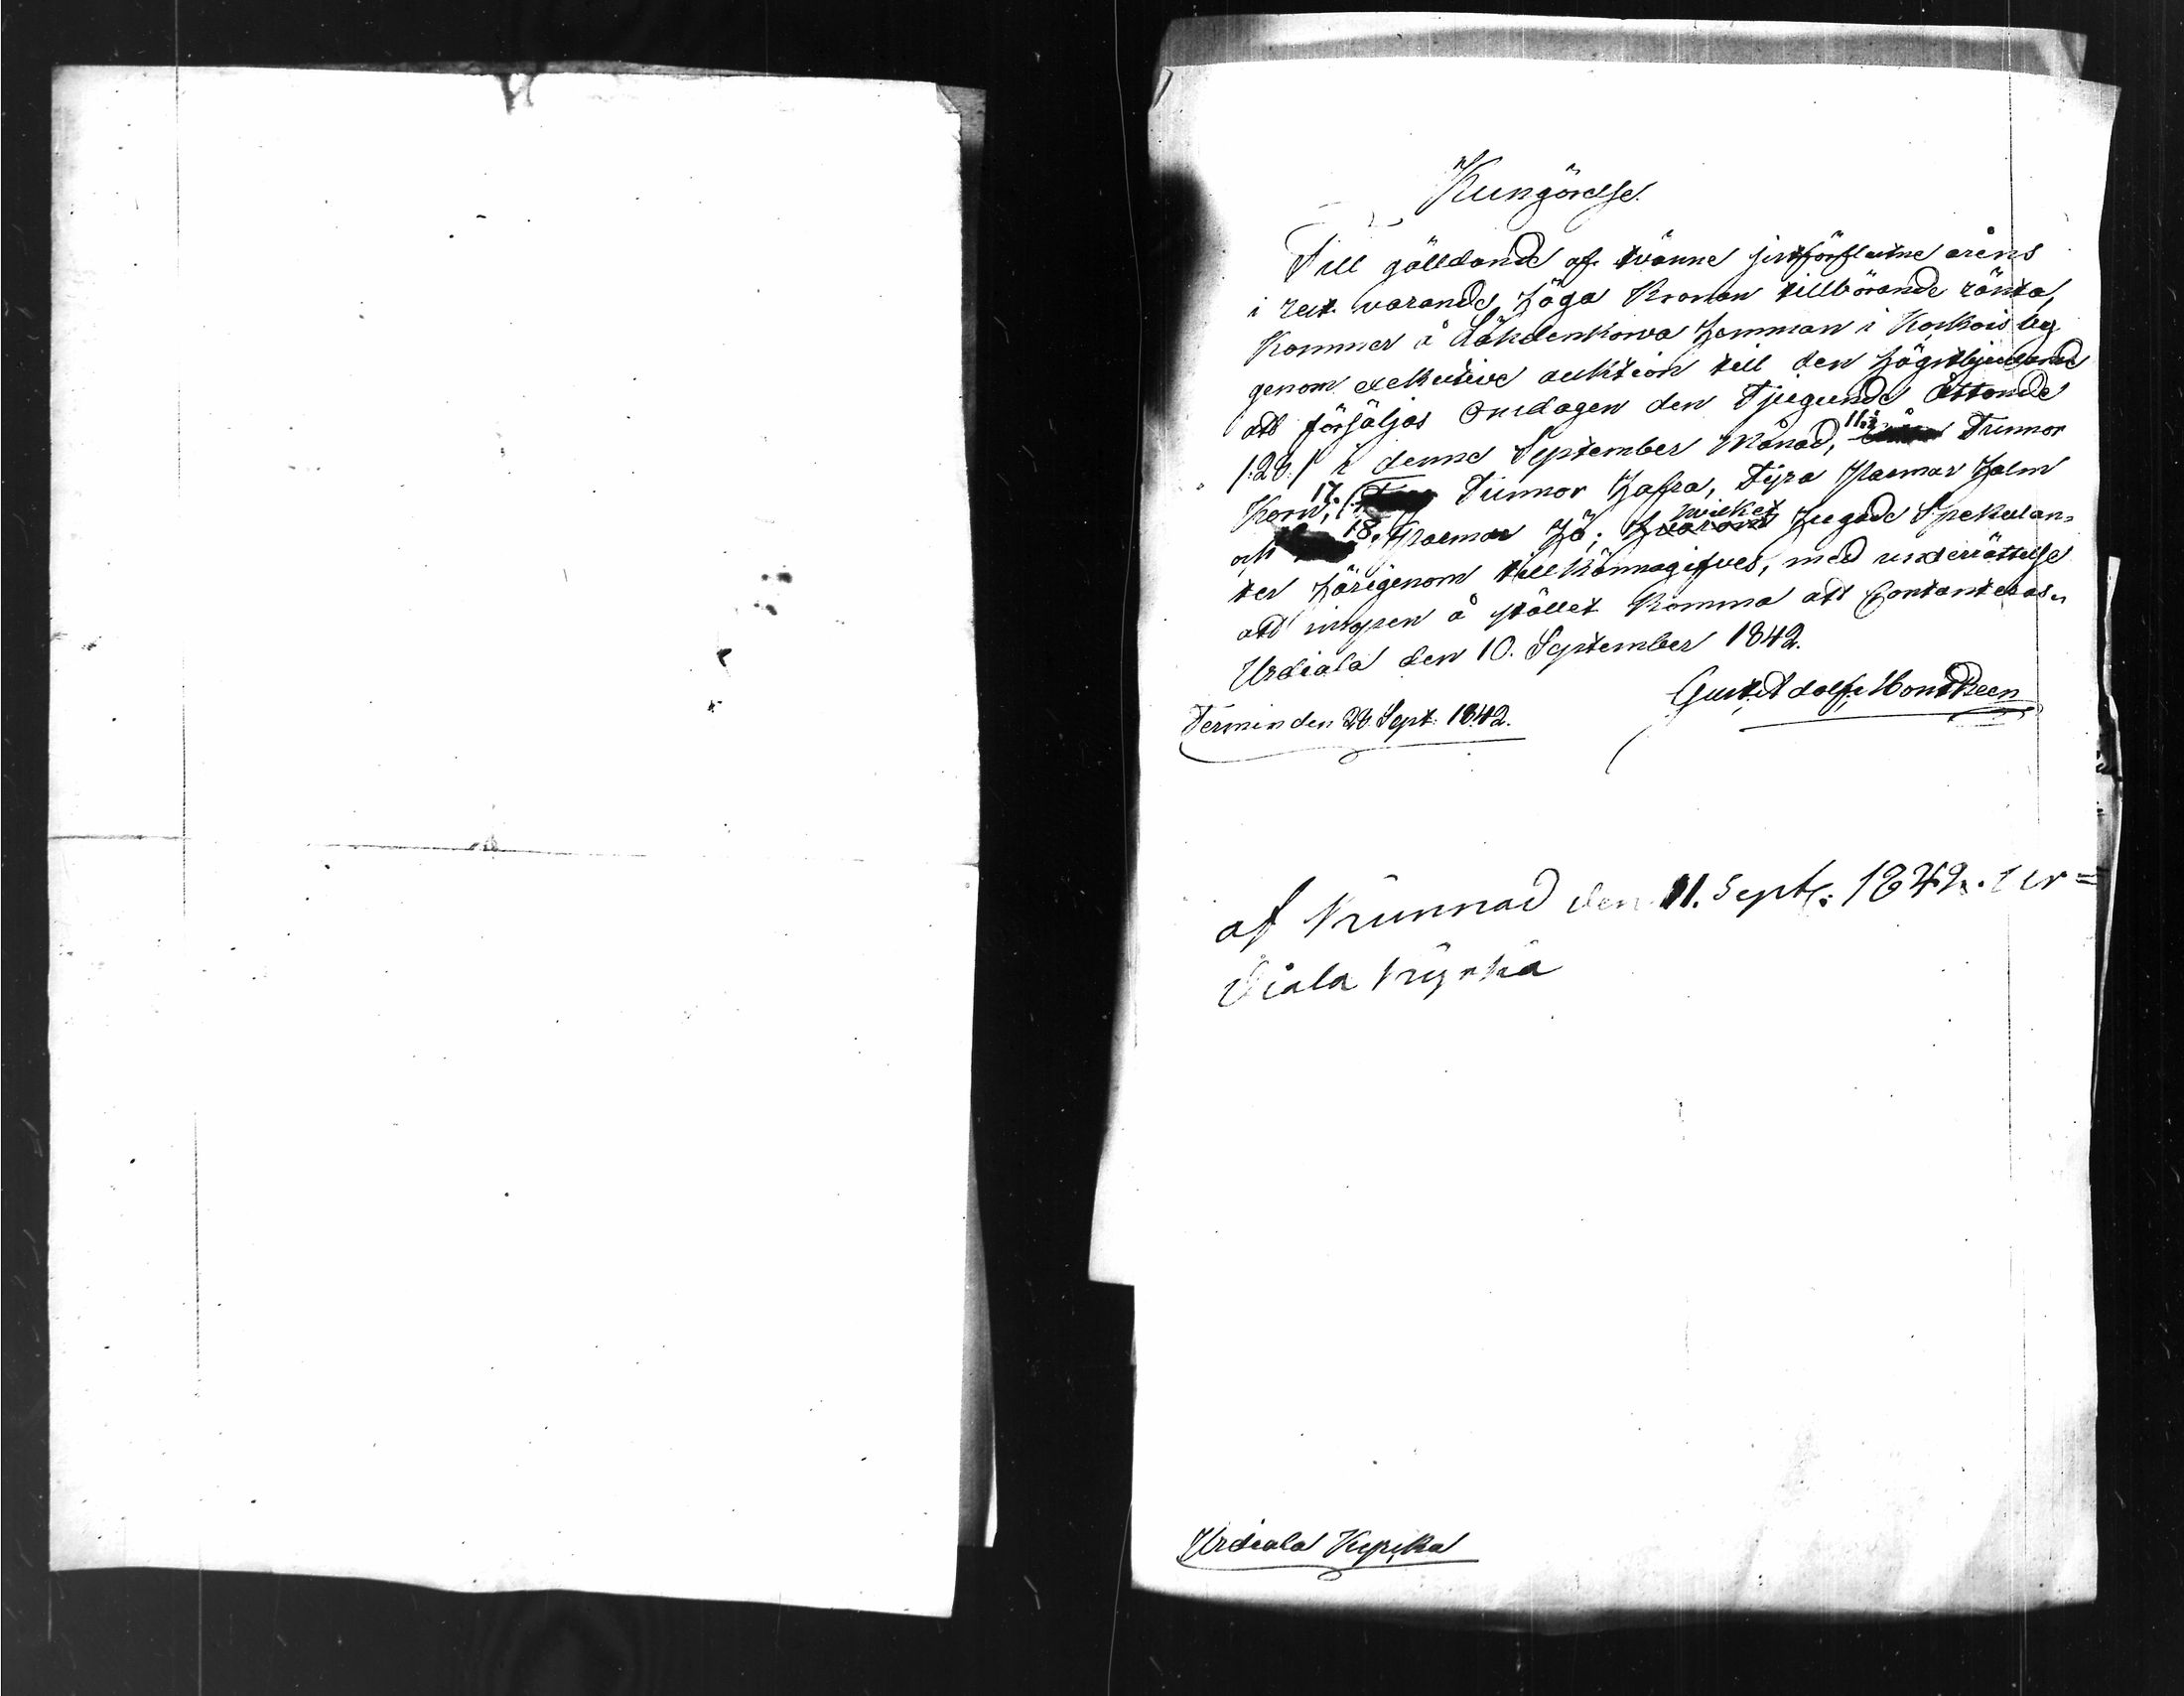 Kungörelse.
Till gälldande af tvänne sistförflutne årens
i rest varande Höga Kronan tillhörande ränta,
Kommer å Lähdenkorva Hemman i Korkois by
genom exekutive auktion till den Högstbjudande
att försäljas Onsdagen den Tjugunde Åttonde
/:28:/ i denne September Månad, 11.½ Tunnor
Korn, 17. Tunnor Hafra, Fyra Parmar Halm
och 18. Parmar Hö; hvilket Hugade Spekulan-
ter härigenom tillkännagifves, med underrättelse
att inropen å stället komma att Contanteras.
Urdiala den 10. September 1842.
Gust. Adolf
Termin den 28 Sept. 1842.
af kunnad den 11. Sept: 1842. Ur=
diala kyrka
Urdiala Kyrka